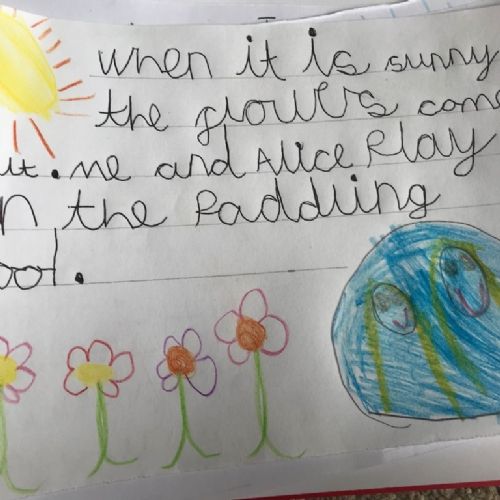 when it is sunny
the flowers come
ut. me and Alice Play
n the Paddling
ool.